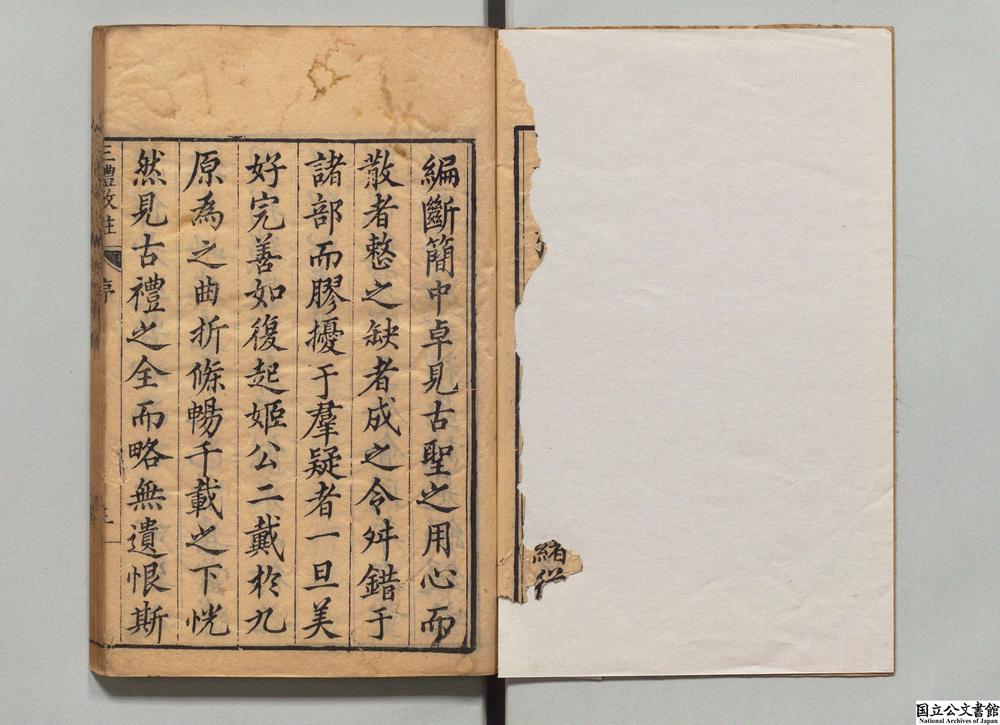 緒
編斷簡中卓見古聖之用心而
散者整之缺者成之令舛錯于
諸部而膠擾于羣疑者一旦美
好完善如復起姬公二戴於九
原為之曲折條暢千載之下恍
然見古禮之全而略無遺恨斯
三禮攷註 序
国立公文書館
National Archives of Japan